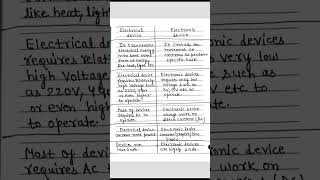 Electrical device
Electronic device
It transforms
Electrical energy
into some other
form of energy
like heat, light, etc
It controls the
movement of
electrons to perform
specific task
Electrical device
requires relatively
high voltage such
as 220V, 
or even higher
to operate
Electronic device
requires very low
voltage such as
3V, 5V etc to
operate
Most of device
requires AC to
operate
Electronic device
always work on
direct current (DC)
Electrical device
consumes more power
Electronic device
consumes low
power
Device are
less safe
Electronic device
are highly safe
like heat, light
Electrical dev
requires relat
high Voltage
as 220V, 
or even high
to operate
onic devices
very low
such as
V etc to
Most of device
requires AC
device
work on